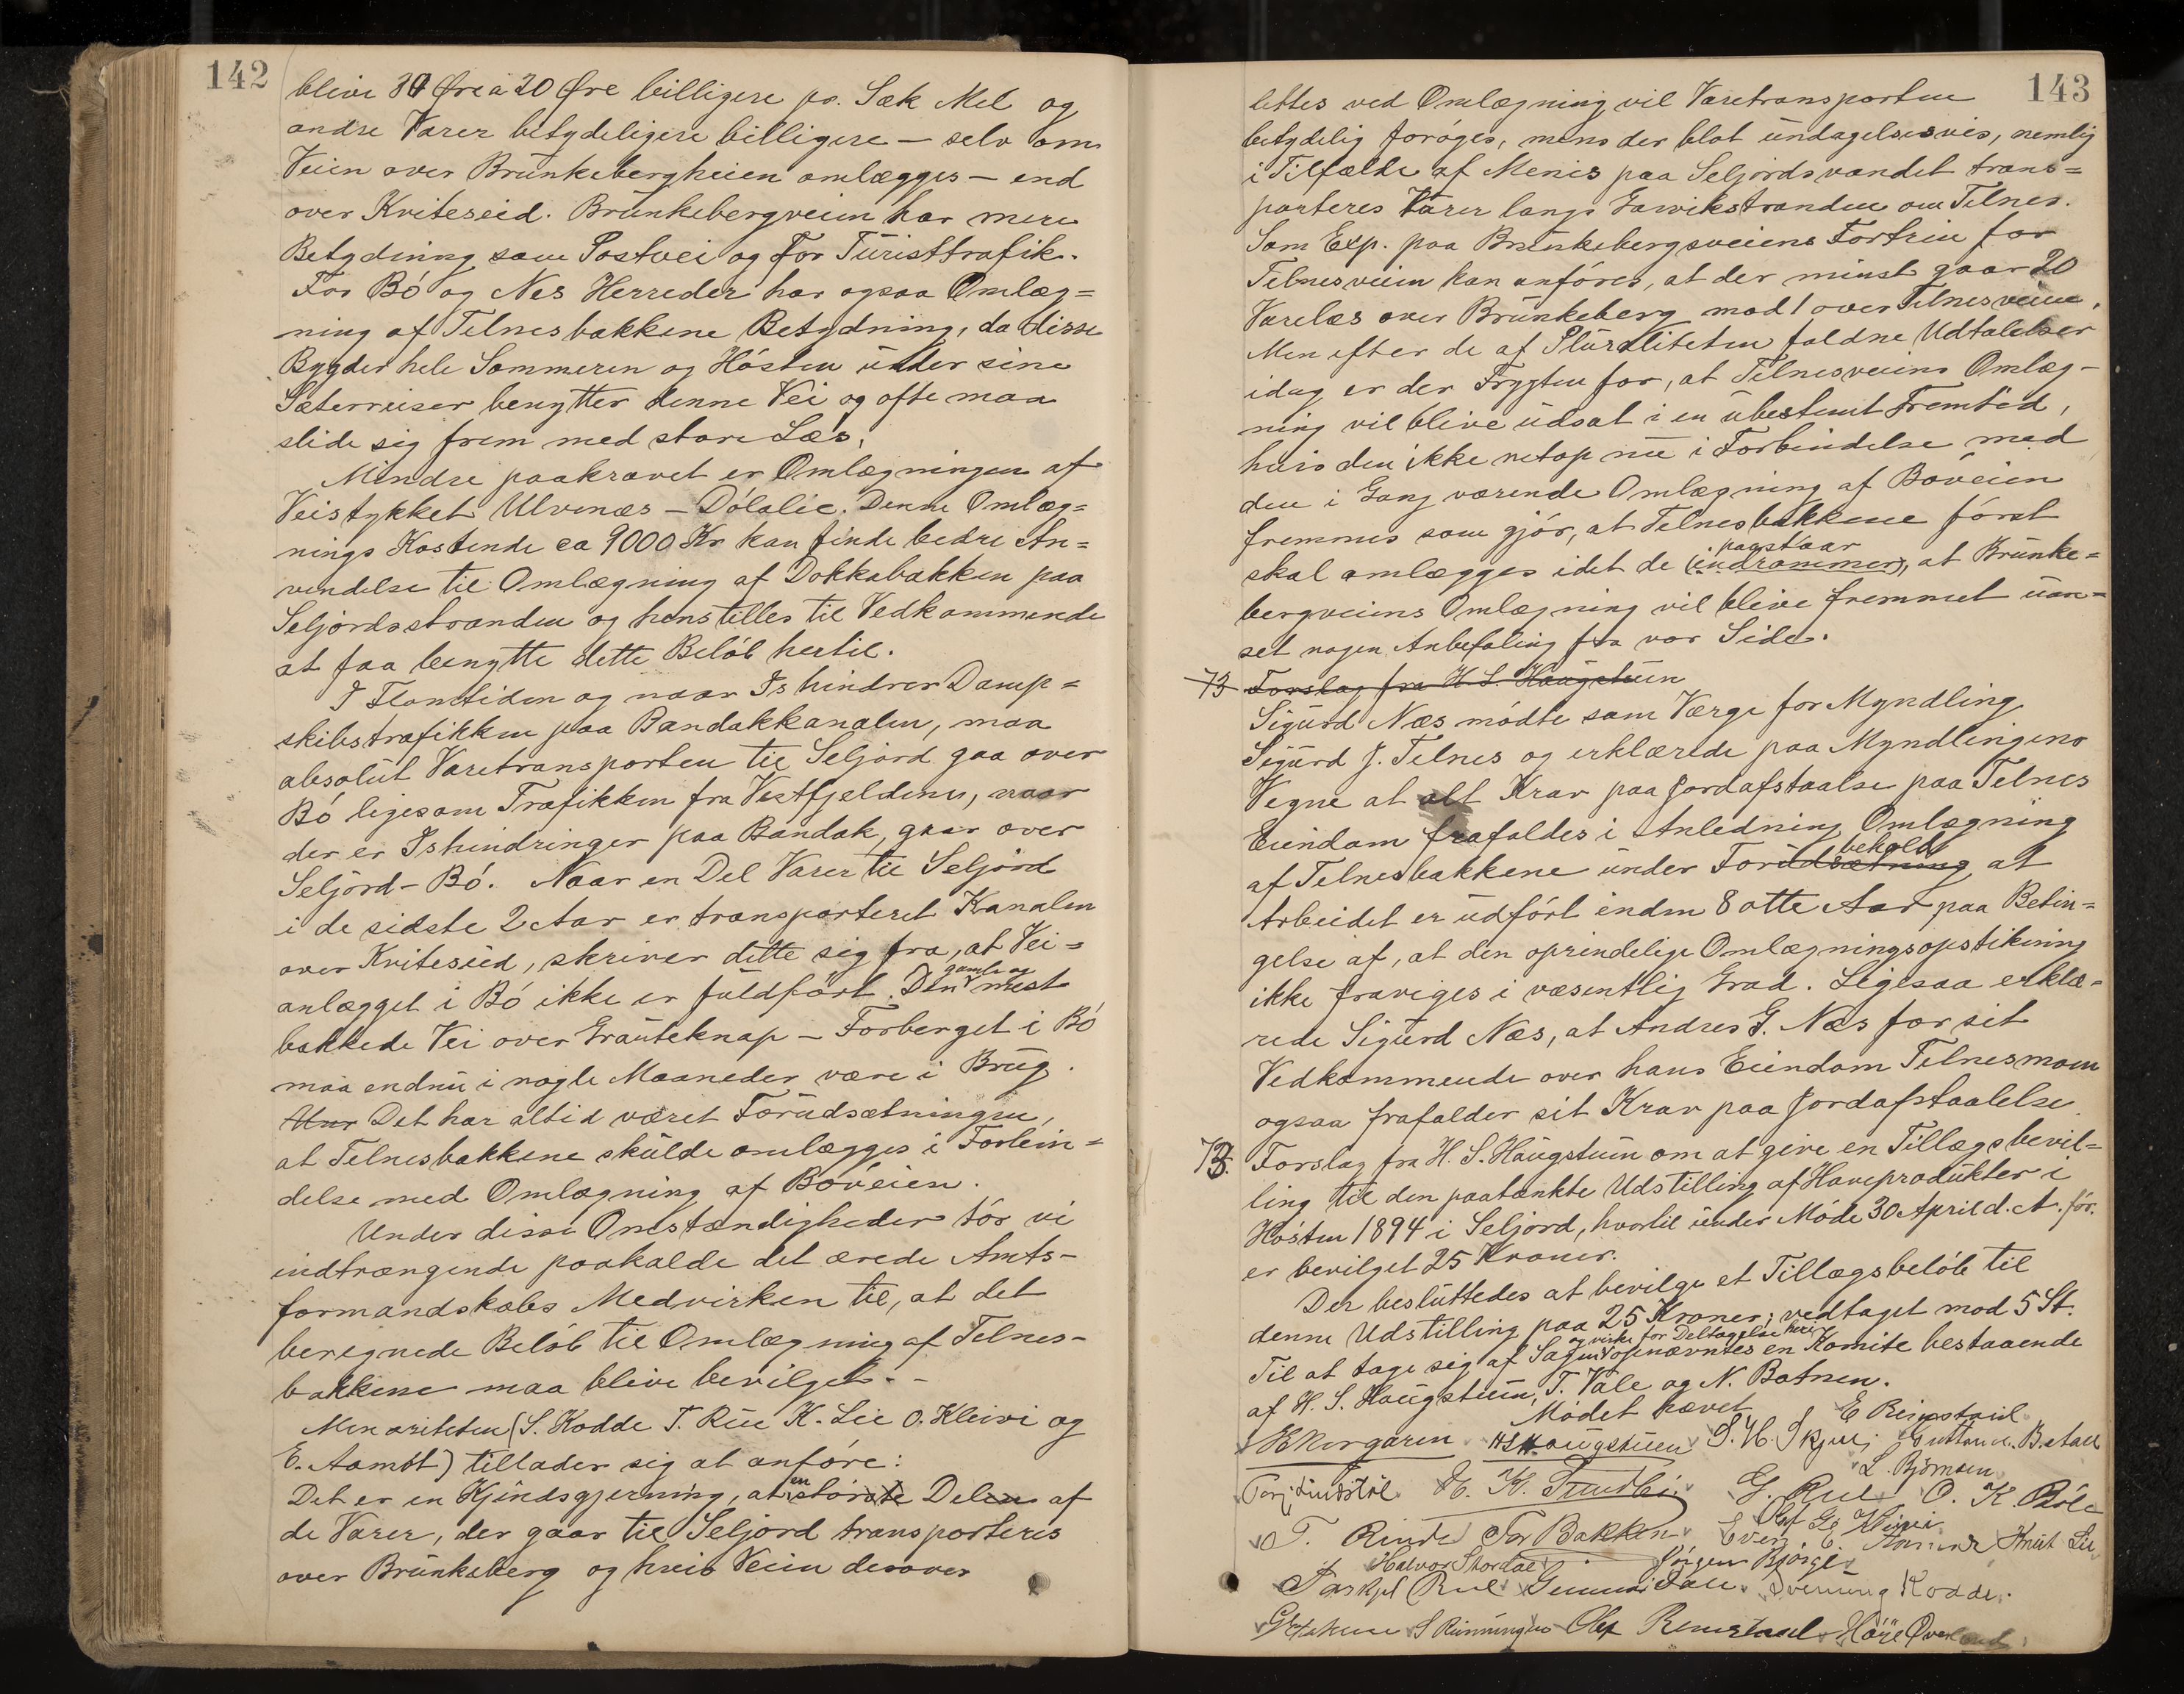 142
blive 30 Øre à 20 Øre billigere pr. Sæk Mel og
andre Varer betydeligere billigere – selv om
Veien over Brunkebergheien omlægges – end
over Kviteseid. Brunkebergveien har mere
Betydning som Postvei og for Turisttrafik.
For Bö og Nes Herreder har ogsaa Omlæg=
ning af Telnesbakkene Betydning, da disse
Bygder hele Sommeren og Hösten under sine
Sæterreiser benytter denne Vei og ofte maa
slide sig frem med store Læs.
Mindre paakrævet er Omlægningen af
Veistykket Ulvenæs – Dölalie. Denne Omlæg=
nings Kostende ca 9000 Kr kan finde bedre An=
vendelse til Omlægning af Dokkabakken paa
Seljordsstranden og henstilles til Vedkommende
at faa benytte dette Belöb hertil.
I Flomtiden og naar Is hindrer Damp=
skibstrafikken paa Bandakkanalen, maa
absolut Varetransporten til Seljord gaa over
Bö ligesom Trafikken fra Vestfjeldene, naar
der er Ishindringer paa Bandak, gaar over
Seljord – Bö. Naar en Del Varer til Seljord
i de sidste 2 Aar er transporteret Kanalen
over Kviteseid, skriver dette sig fra, at Vei=
anlægget i Bö ikke er fuldfört. Den gamle og mest
bakkede Vei over Grauteknap – Forberget i Bö
maa endnu i nogle Maaneder være i Brug.
Det har altid været Forudsætningen,
at Telnesbakkene skulde omlægges i Forbin=
delse med Omlægning af Böveien.
Under disse Omstændigheder tör vi
indtrængende paakalde det ærede Amts-
formandskabs Medvirken til, at det
beregnede Belöb til Omlægning af Telnes-
bakkene maa blive bevilget. -
Menoriteten (S. Kodde T. Rue K. Lie O. Kleivi og
E. Aamot) tillader sig at anföre:
Det er en Kjendsgjerning, at en störste Delen af
de Varer, der gaar til Seljord transporteres
over Brunkeberg og hvis Veien derover
143
lettes ved Omlægning vil Varetransporten
betydelig foröges, mens der blot undagelsesvis, nemlig
i Tilfælde af Menis paa Seljordsvandet trans=
porteres Varer langs Garvikstranden om Telnes.
Som Exp. paa Brunkebergsveiens Fortrin for
Telnesveien kan anföres, at der minst gaar 20
Varelæs over Brunkeberg mod 1 over Telnesveien.
Men efter de af Pluraliteten faldne Udtalelser
idag er der Frygten for, at Telnesveiens Omlæg-
ning vil blive udsat i en ubestemt Fremtid,
hvis den ikke netop nu i Forbindelse med
den i Gang værende Omlægning af Böveien
fremmes som gjör, at Telnesbakkene först
skal omlægges idet de (indrömmer) paastaar, at Brunke=
bergveiens Omlægning vil blive fremmet uan=
set nogen Anbefaling fra vor Side.
73 Forslag fra H. S. Haugstuen
Sigurd Næs mödte som Værge for Myndling
Sigurd J. Telnes og erklærede paa Myndlingens
Vegne at alt Krav paa Jordafstaalse paa Telnes
Eiendom frafaldes i Anledning Omlægning
af Telnesbakkene under Forudsætning behold, at
Arbeidet er udfört inden 8 otte Aar paa Betin=
gelse af, at den oprindelige Omlægningsopstikning
ikke fraviges i væsentlig Grad. Ligesaa erklæ=
rede Sigurd Næs, at Andres G. Næs for sit
Vedkommende over hans Eiendom Telnesmoen
ogsaa frafalder sit Krav paa Jordafstaalelse.
73. Forslag fra H. S. Haugstuen om at give en Tillægsbevil=
ling til den paatænkte Udstilling af Haveprodukter i
Hösten 1894 i Seljord, hvortil under Möde 30 April d. A. för.
er bevilget 25 Kroner.
Der besluttedes at bevilge et Tillægsbelöb til
denne Udstilling paa 25 Kroner; vedtaget mod 5 St.
Til at tage sig af Sagen og virke for Deltagelse heri opnævntes en Komite bestaaende
af H. S. Haugstuen, T. Vale og N. Botnen.
Mödet hævet
HS Haugstuen
L. Björnsen
G. Rue O. K. Böle
T. Rinde Tor Bakken Knut Lie
Halvor Jörgen Björge
Taskjel Rue Svenning Kodde.
S Runningen Olaf